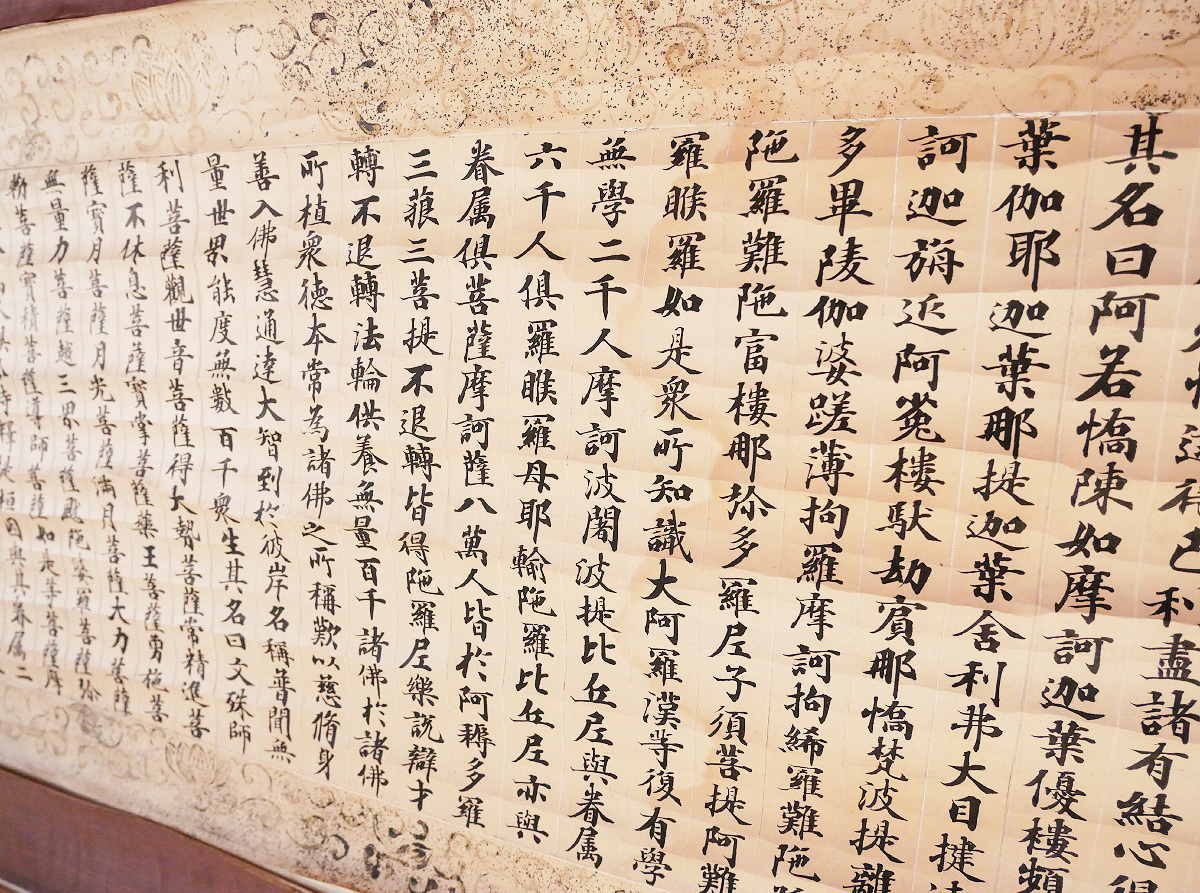 逮得己利盡諸有結心得
其名曰阿若憍陳如摩訶迦葉優樓頻
葉伽耶迦葉那提迦葉舍利弗大目揵
訶迦旃延阿㝹樓馱劫賓那憍梵波提離
多畢陵伽婆蹉薄拘羅摩訶拘絺羅難陁
陁羅難陁富樓那弥多羅尼子須菩提阿難
羅睺羅如是衆所知識大阿羅漢等復有學
無學二千人摩訶波闍波提比丘尼與眷属
六千人俱羅睺羅母耶輸陁羅比丘尼亦與
眷属俱菩薩摩訶薩八萬人皆於阿耨多羅
三藐三菩提不退轉皆得陁羅尼樂說辯才
轉不退轉法輪供養無量百千諸佛於諸佛
所植衆德本常為諸佛之所稱歎以慈脩身
善入佛慧通達大智到於彼岸名稱普聞無
量世界能度無數百千衆生其名曰文殊師
利菩薩觀世音菩薩得大勢菩薩常精進菩
薩不休息菩薩寶掌菩薩藥王菩薩勇施菩
薩寶月菩薩月光菩薩滿月菩薩大力菩薩
無量力菩薩越三界菩薩颰陁婆羅菩薩弥
勒菩薩寶積菩薩導師菩薩如是等菩薩摩
時釋提桓因與其眷属二